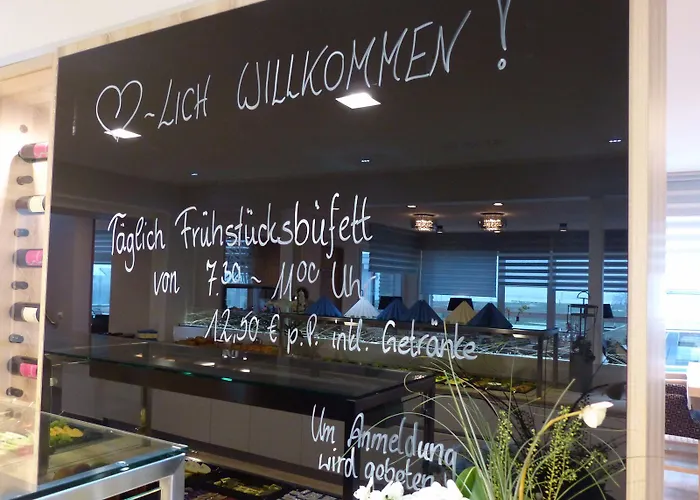 ♡~LICH WILLKOMMEN!
Täglich Frühstücksbüfett
von 7.30 ~ 11.00 Uhr
12,50 € p.P. inkl. Getränke
Um Anmeldung
wird gebeten